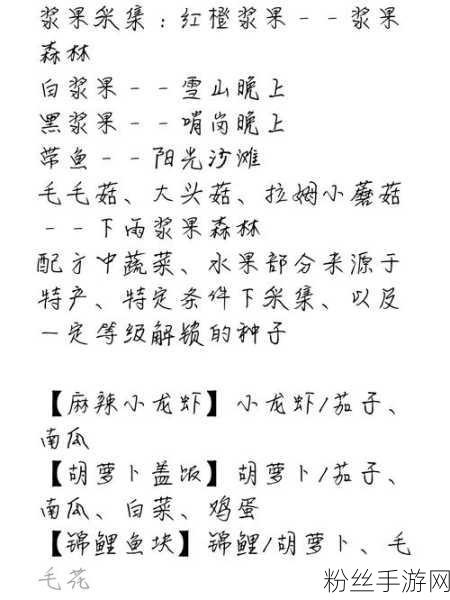 浆果采集：红橙浆果--浆果
森林
白浆果--雪山晚上
黑浆果--哨岗晚上
带鱼--阳光沙滩
毛毛菇、大头菇、拉姆小蘑菇
--下雨浆果森林
配方中蔬菜、水果部分来源于
特产、特定条件下采集、以及
一定等级解锁的种子
【麻辣小龙虾】小龙虾/茄子、
南瓜
【胡萝卜盖饭】胡萝卜/茄子、
南瓜、白菜、鸡蛋
【锦鲤鱼块】锦鲤/胡萝卜、毛
毛花
粉丝手游网